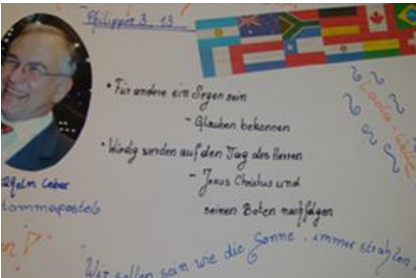 Philipper 3, 13
• Für andere ein Segen sein
- Glauben bekennen
• Würdig werden auf den Tag des Herren
- Jesus Christus und
seinen Boten nachfolgen
Leber
Stammapostels
Wir sollen sein wie die Sonne, immer strahlen